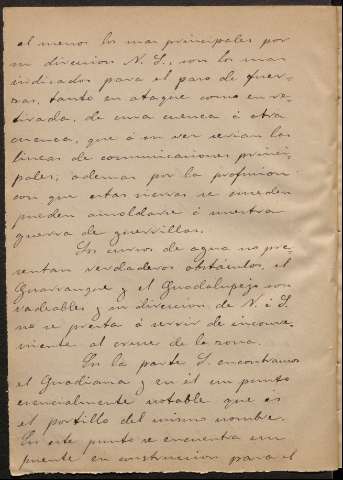 al menos los mas principales por
su direccion N. S., son los mas
indicados para el paso de fuer-
zas, tanto en ataque como en re-
tirada, de una cuenca á otra
cuenca, que á su vez serian las
lineas de comunicaciones princi-
pales; ademas por la profusion
con que estas sierras se suceden
pueden amoldarse á nuestra
guerra de guerrillas.
Los cursos de agua no pre-
sentan verdaderos obstáculos, el
Guarranque y el Guadalupejo son
vadeables y su direccion de N. á S.
no se presta á servir de inconve-
niente al cruce de la zona.
En la parte S. encontramos
el Guadiana y en él un punto
esencialmente notable que es
el portillo del mismo nombre.
En este punto se encuentra un
puente en construccion para el